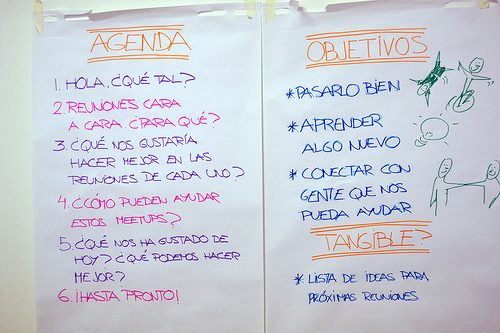 AGENDA
1. HOLA, ¿QUÉ TAL?
2. REUNIONES CARA
A CARA. ¿PARA QUÉ?
3 ¿QUÉ NOS GUSTARÍA
HACER MEJOR EN LAS
REUNIONES DE CADA UNO?
4. ¿CÓMO PUEDEN AYUDAR
ESTOS MEETUPS?
5. ¿QUÉ NOS HA GUSTADO DE
HOY? ¿QUÉ PODEMOS HACER
MEJOR?
6. ¡HASTA PRONTO!
OBJETIVOS
* PASARLO BIEN
* APRENDER
ALGO NUEVO
* CONECTAR CON
GENTE QUE NOS
PUEDA AYUDAR
TANGIBLE?
* LISTA DE IDEAS PARA
PRÓXIMAS REUNIONES